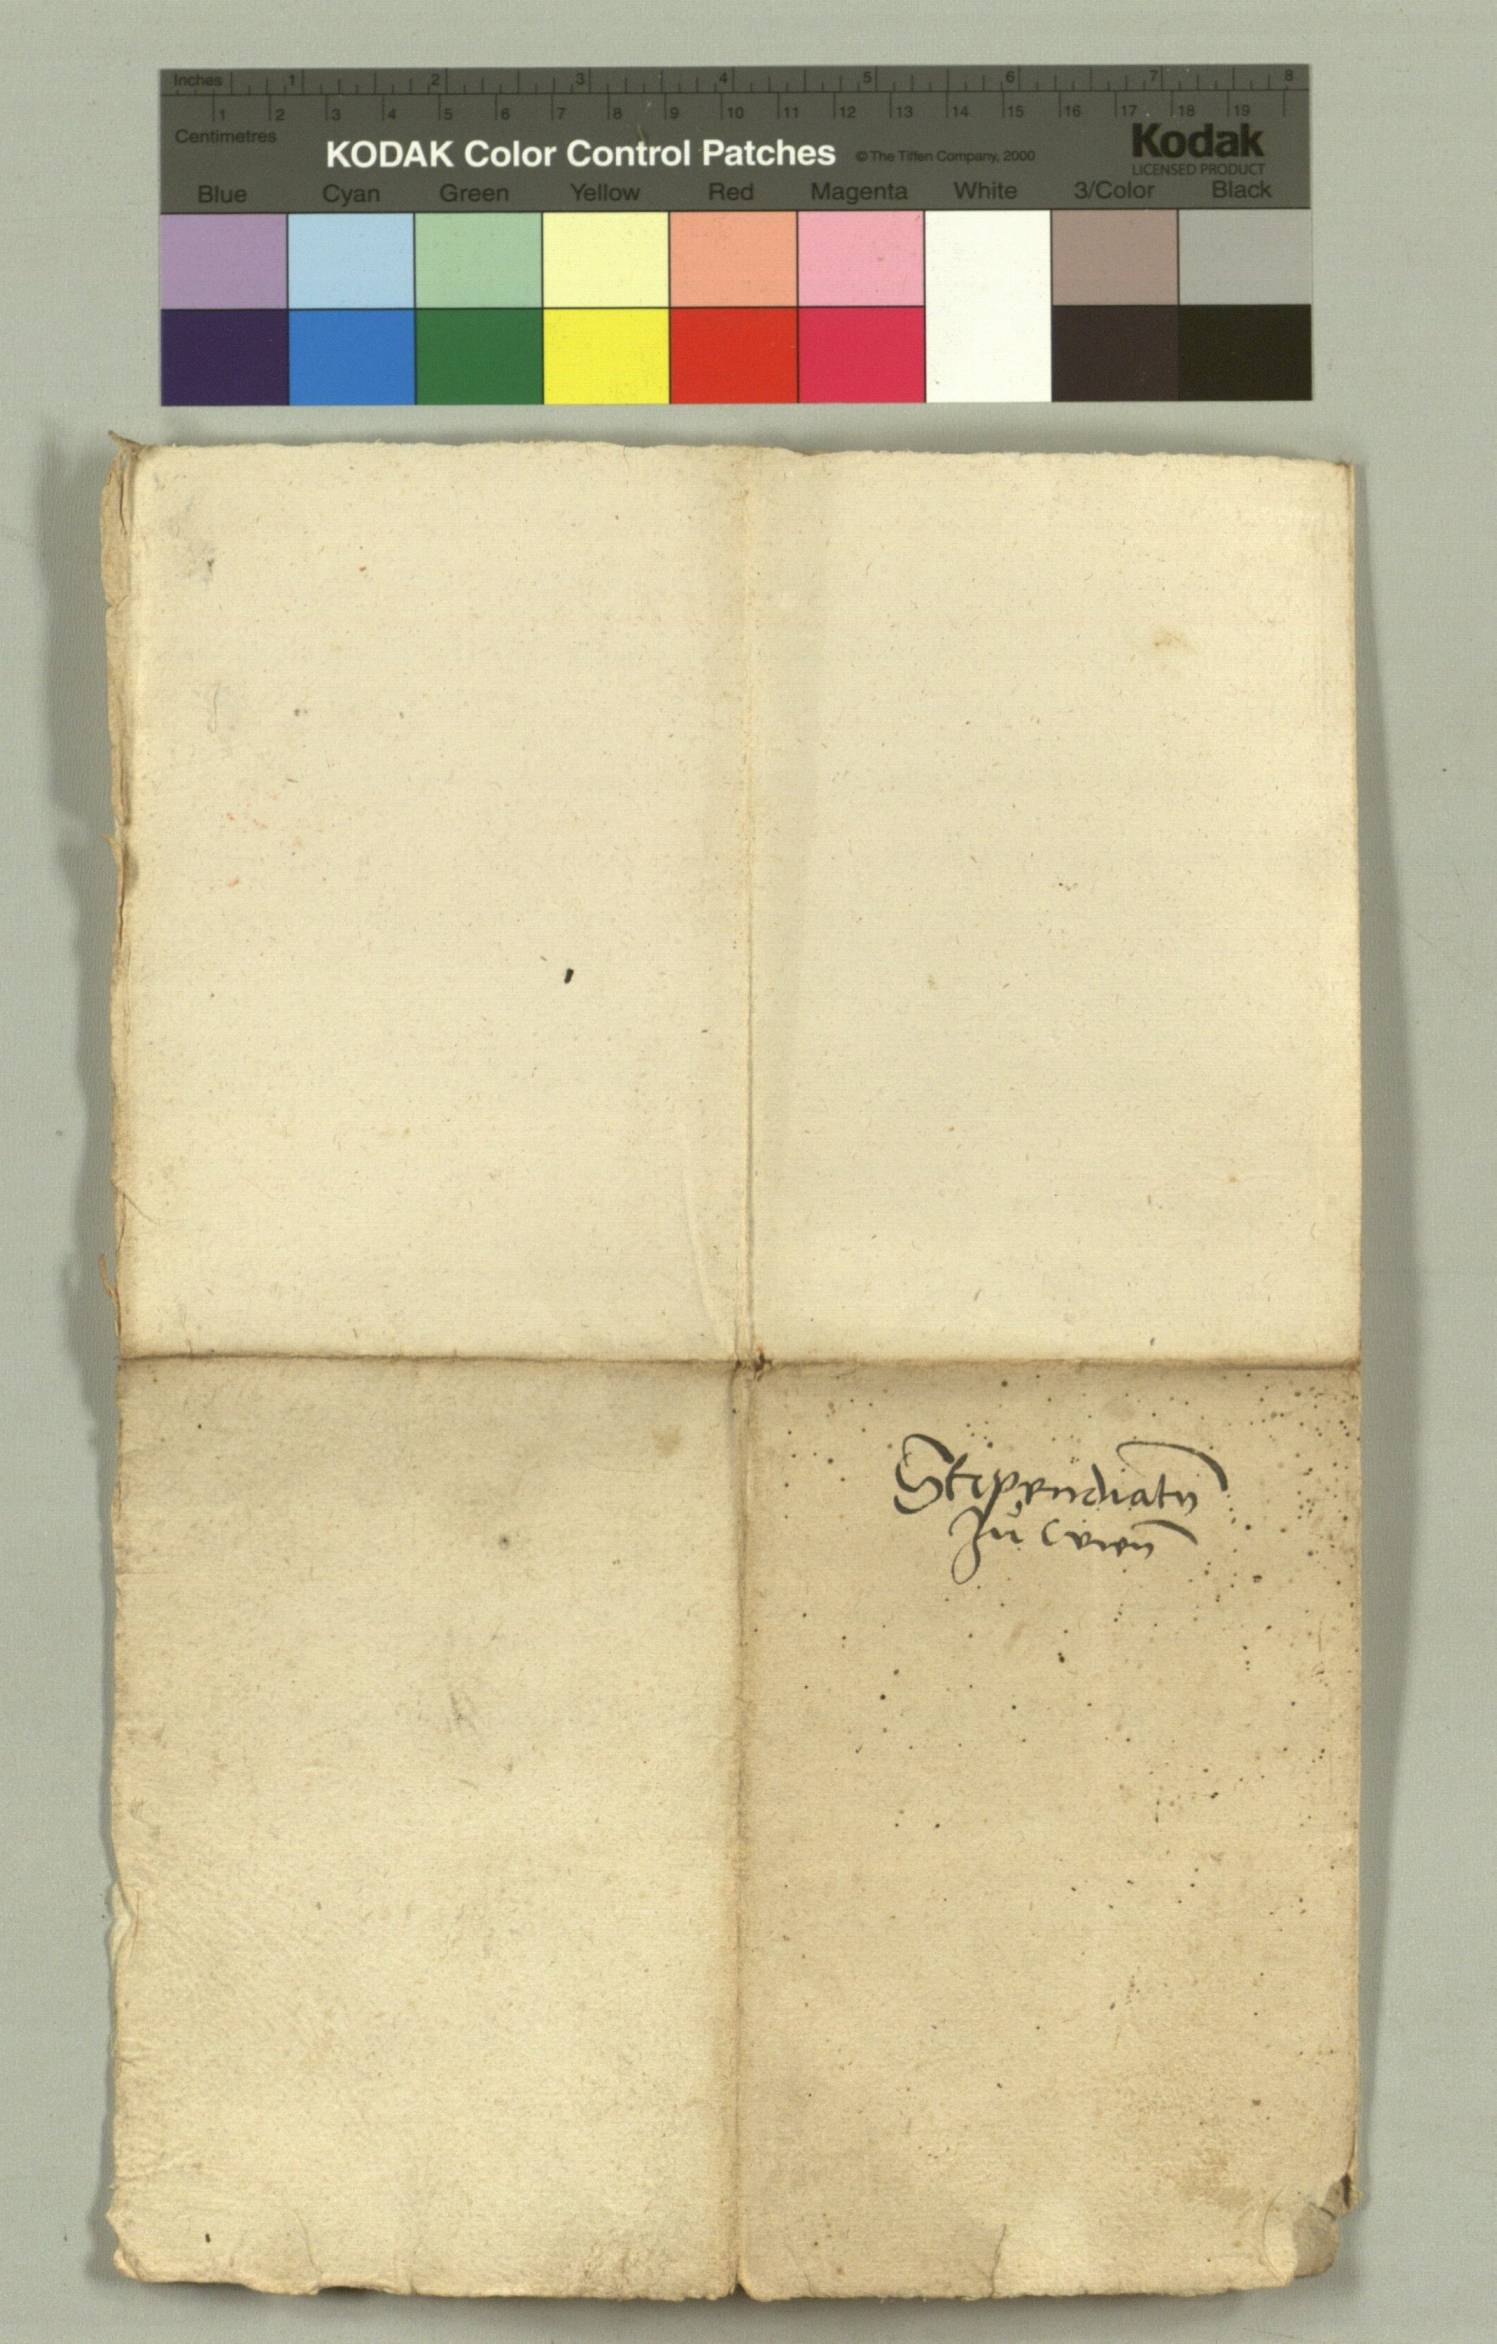 Inches 1 2 3 4 5 6 7 8
1 2 3 4 5 6 7 8 9 10 11 12 13 14 15 16 17 18 19
Centimetres
KODAK Color Control Patches © The Tiffen Company, 2000 Kodak
LICENSED PRODUCT
Blue Cyan Green Yellow Red Magenta White 3/Color Black
Stipendiatn
zu